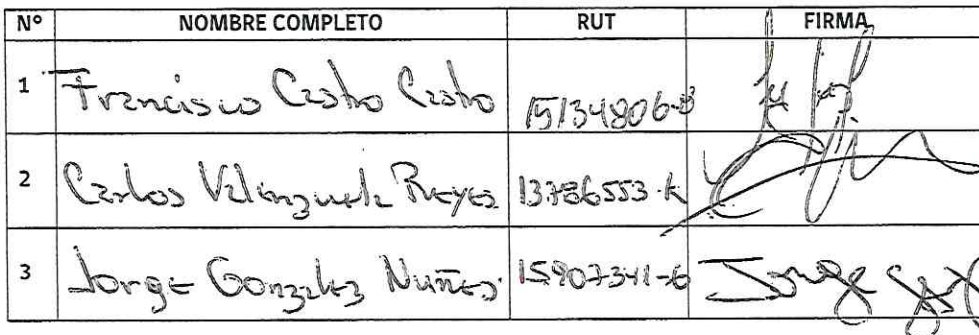 N° NOMBRE COMPLETO RUT FIRMA
1 Francisco Castro Castro 15134806-8
2 Carlos Valenzuela Reyes 13.786553-k
3 Jorge Gonzalez Nuñez 15907341-6 Jorge